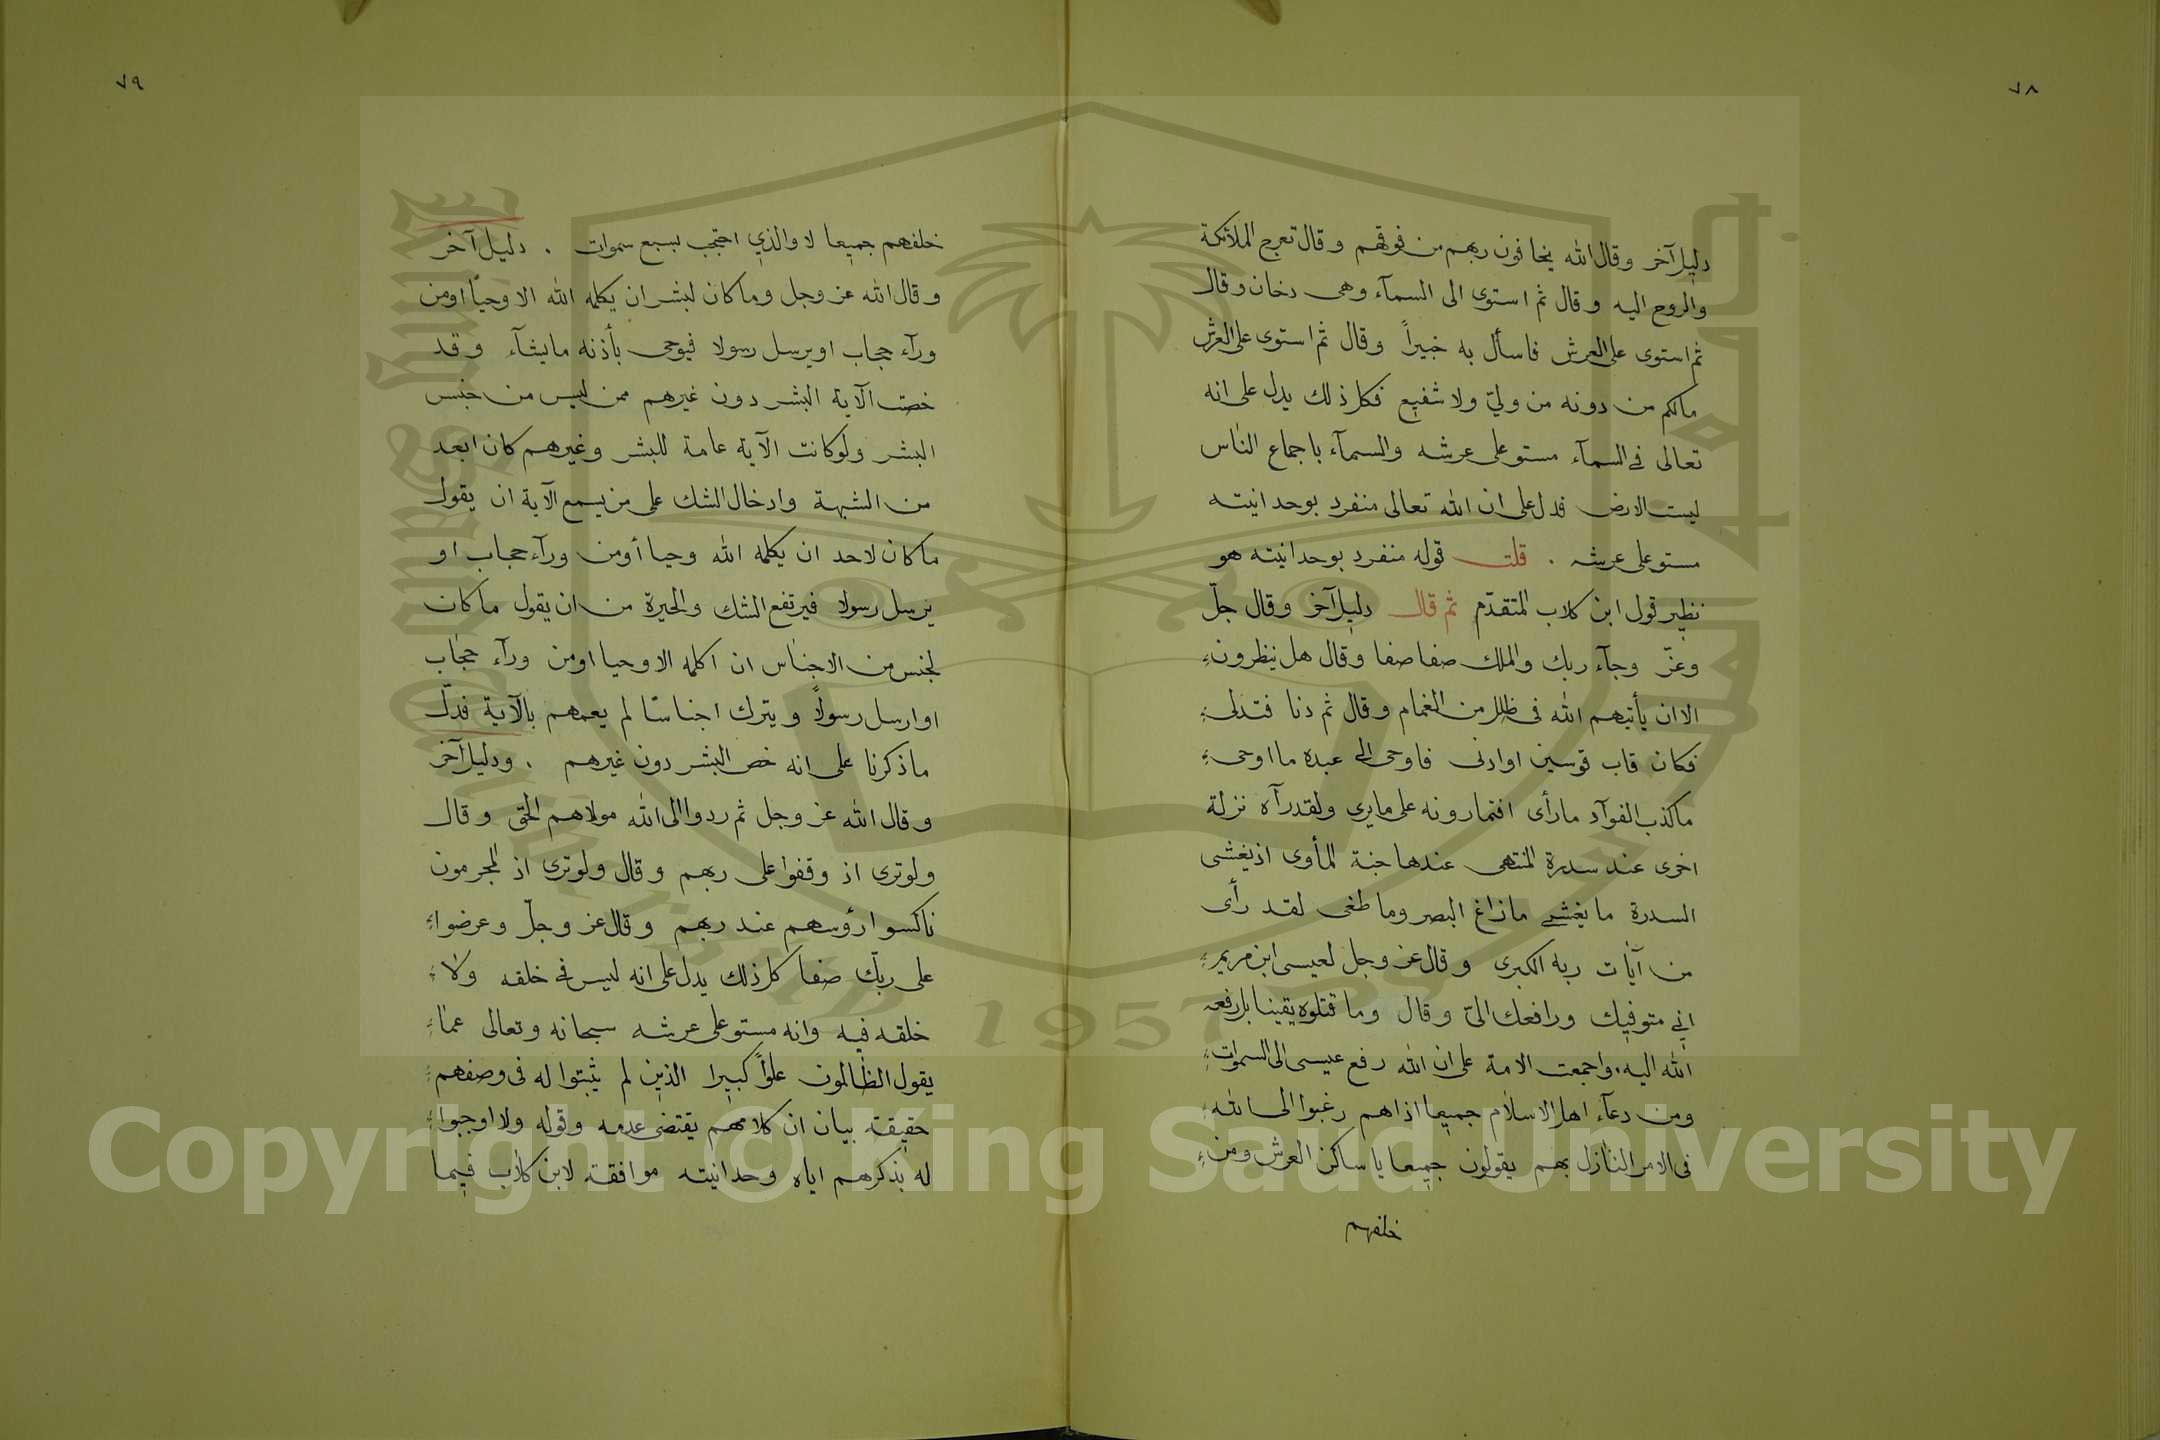 ٧٨
دليل آخر وقال الله يخافون ربهم من فوقهم وقال تعرج الملآئكة
والروح اليه وقال ثم استوى الى السمآء وهى دخان وقال
ثم استوى على العرش فاسأل به خبيراً وقال ثم استوى على العرش
مالكم من دونه من وليّ ولا شفيع فكل ذلك يدل على انه
تعالى في السمآء مستو على عرشه والسمآء باجماع الناس
ليست الارض فدل على ان الله تعالى منفرد بوحدانيته
مستو على عرشه . قلت قوله منفرد بوحدانيته هو
نظير قول ابن كلاب المتقدّم ثم قال دليل آخر وقال جلّ
وعزّ وجآء ربك والملك صفا صفا وقال هل ينظرون
الا ان يأتيهم الله فى ظلل من الغمام وقال ثم دنا فتدلى
فكان قاب قوسين او ادنى فاوحى الى عبده ما اوحى
ماكذب الفوآد مارأى افتمارونه على مايرى ولقد رآه نزلة
اخرى عند سدرة المنتهى عندها جنة المأوى اذ يغشى
السدرة ما يغشى مازاغ البصر وما طغى لقد رأى
من آيات ربه الكبرى وقال عز وجل لعيسى ابن مريم
اني متوفيك ورافعك اليّ وقال وما قتلوه يقينا بل رفعه
الله اليه، واجمعت الامة على ان الله رفع عيسى الى السموات
ومن دعآء اهل الاسلام جميعا اذا هم رغبوا الى الله
فى الامر النازل بهم يقولون جميعا يا ساكن العرش ومن
خلفهم
٧٩
خلفهم جميعا لا والذي احتجب بسبع سموات . دليل آخر
وقال الله عز وجل وما كان لبشر ان يكلمه الله الا وحياً او من
ورآء حجاب او يرسل رسولا فيوحى بأذنه مايشآء وقد
خصت الآية البشر دون غيرهم ممن ليس من جنس
البشر ولو كانت الآية عامة للبشر وغيرهم كان ابعد
من الشبهة وادخال الشك على من يسمع الآية ان يقول
ما كان لاحد ان يكلمه الله وحيا أو من ورآء حجاب او
يرسل رسولا فيرتفع الشك والحيرة من ان يقول ما كان
لجنس من الاجناس ان اكلمه الا وحيا او من ورآء حجاب
او ارسل رسولاً ويترك اجناسًا لم يعمهم بالآية فدلّ
ماذكرنا على انه خص البشر دون غيرهم . ودليل آخر
وقال الله عز وجل ثم ردوا الى الله مولاهم الحق وقال
ولو ترى اذ وقفوا على ربهم وقال ولو ترى اذ المجرمون
ناكسوا رؤسهم عند ربهم وقال عز وجلّ وعرضوا
على ربّك صفا كل ذلك يدل على انه ليس فى خلقه ولا
خلقه فيه وانه مستو على عرشه سبحانه وتعالى عما
يقول الظالمون علوّاً كبيرا الذين لم يثبتوا له فى وصفهم
حقيقة بيان ان كلامهم يقتضى عدمه وقوله ولا اوجبوا
له بذكرهم اياه وحدانيته موافقة لابن كلاب فيما
1957
Copyright © King Saud University